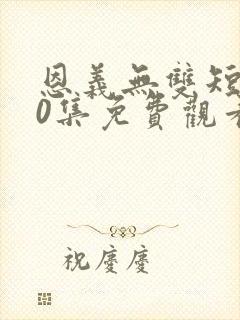 恩義無雙短
0集免費觀看
祝慶慶